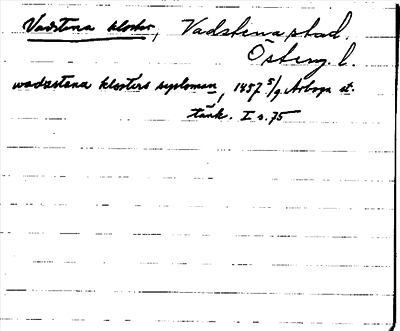 Vadstena kloster, Vadstena stad.
Österg. l.
wadzstena klosters sysloman, 1457 5/9 Arboga st.
tänk. I s. 75